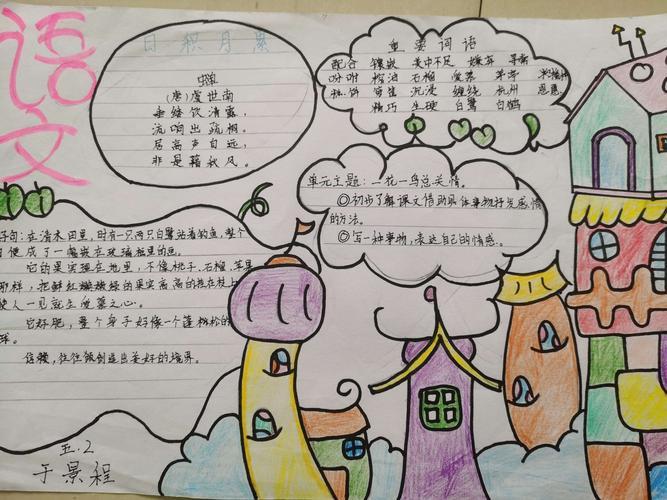 语文
日积月累
蝉
(唐)虞世南
垂緌饮清露，
流响出疏桐。
居高声自远，
非是藉秋风。
重要词语
配合 镶嵌 美中不足 嫌弃 寻常
吩咐 榨油 石榴 爱慕 茅亭
桃饼 寄宿 沉浸 缠绕 杭州 恩惠
精巧 生硬 白鹭 白鹤
单元主题：一花一鸟总关情。
◎初步了解课文借助具体事物抒发感情
的方法。
◎写一种事物，表达自己的情感。
好句：在清水田里，时有一只两只白鹭站着钓鱼，整个
便成了一幅嵌在玻璃框里的画。
它的果实埋在地里，不像桃子、石榴、苹果
那样，把鲜红嫩绿的果实高高的挂在枝上
使人一见就生爱慕之心。
它好肥，整个身子好像一个蓬松的
球。
信赖，往往能创造出美好的境界。
五.2
于景程